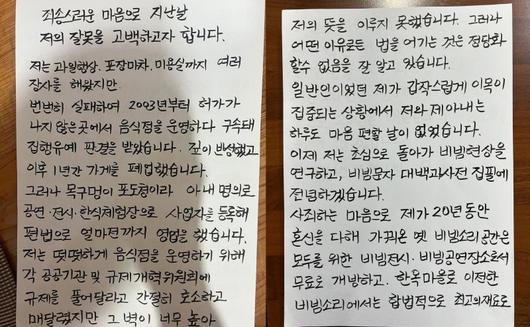 죄송스러운 마음으로 지난날
저의 잘못을 고백하고자 합니다.
저는 과일행상. 포장마차. 미용실까지 여러
장사를 해왔지만.
번번히 실패하여 2003년부터 허가가
나지 않은곳에서 음식점을 운영하다 구속돼
집행유예 판결을 받았습니다. 깊이 반성했고
이후 1년간 가게를 폐업했습니다.
그러나 목구멍이 포도청이라 아내 명의로
공연·전시·한식체험장으로 사업자를 등록해
편법으로 얼마전까지 영업을 했습니다.
저는 떳떳하게 음식점을 운영하기 위해
각 공공기관 및 규제개혁위원회에
규제를 풀어달라고 간절히 호소하고
매달렸지만 그 벽이 너무 높아
저의 뜻을 이루지 못했습니다. 그러나
어떤 이유로든 법을 어기는 것은 정당화
할수 없음을 잘 알고 있습니다.
일반인이었던 제가 갑작스럽게 이목이
집중되는 상황에서 저와 제아내는
하루도 마음 편할 날이 없었습니다.
이제 저는 초심으로 돌아가 비빔현상을
연구하고, 비빔문자 대백과사전 집필에
전념하겠습니다.
사죄하는 마음으로 제가 20년 동안
혼신을 다해 가꿔온 옛 비빔소리 공간은
모두를 위한 비빔전시·비빔공연장소로서
무료로 개방하고. 한옥마을로 이전한
비빔소리에서는 합법적으로 최고의재료로